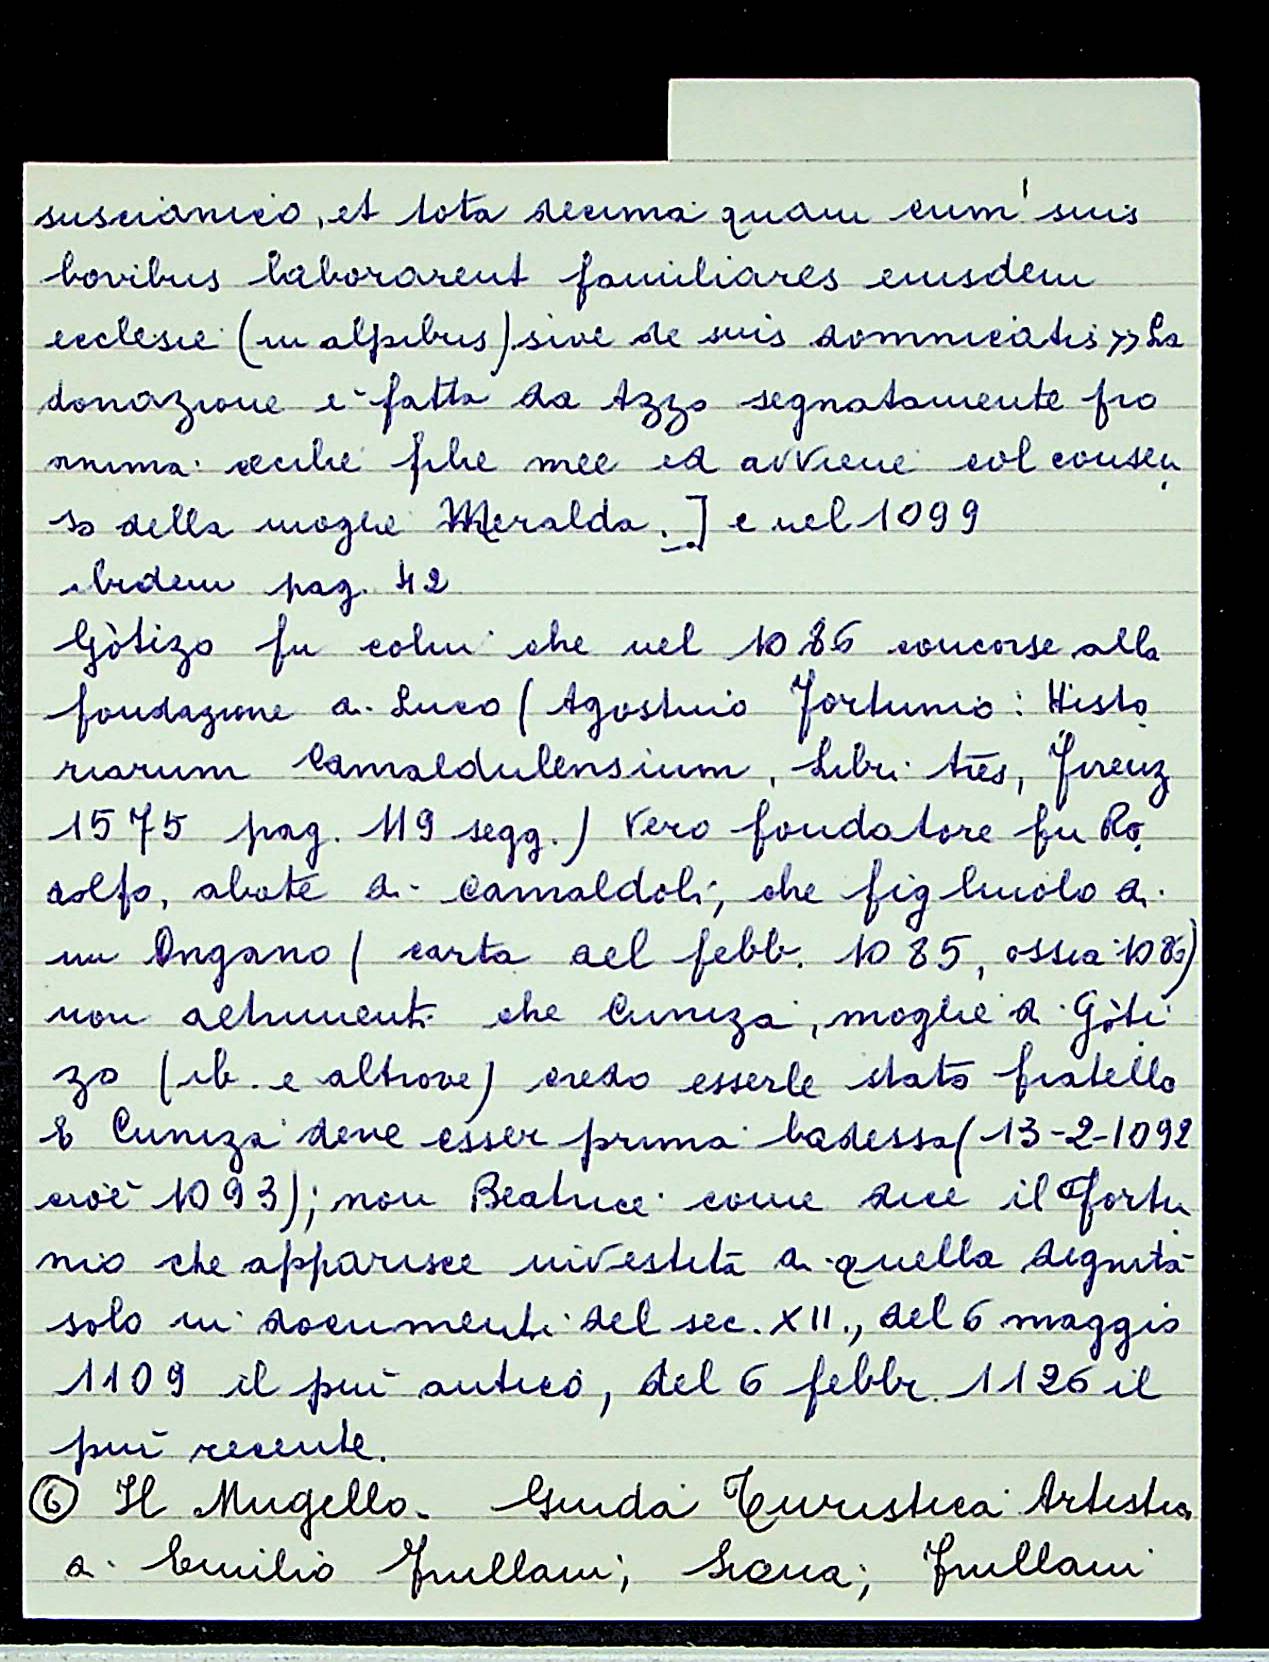 suscianico, et tota decima quam cum suis
bovibus laborarent familiares eiusdem
ecclesie (in alpibus) sive de suis domnicatis >> La
donazione è fatta da Azzo segnatamente pro
anima cecilie filie mee ed avviene col consen
so della moglie Meralda.] e nel 1099
ibidem pag. 42
Gòtizo fu colui che nel 1086 concorse alla
fondazione di Luco (Agostino Fortunio: Histo
riarum Camaldulensium, Libri tres, Firenz
1575 pag. 119 segg.) Vero fondatore fu Ro
dolfo, abate di Camaldoli, che figliuolo di
un Ongano (carta del febb. 1085, ossia 1086)
non altrimenti che Cuniza, moglie di Gòti
zo (ib. e altrove) credo esserle stato fratello
E Cuniza deve esser prima badessa (13-2-1092
cioè 1093); non Beatrice come dice il Fortu
nio che apparisce investita di quella dignità
solo in documenti del sec. XII., del 6 maggio
1109 il più antico, del 6 febbr. 1126 il
più recente.
⑥ Il Mugello. Guida Turistica Artistica
di Emilio Frullani; Siena; Frullani